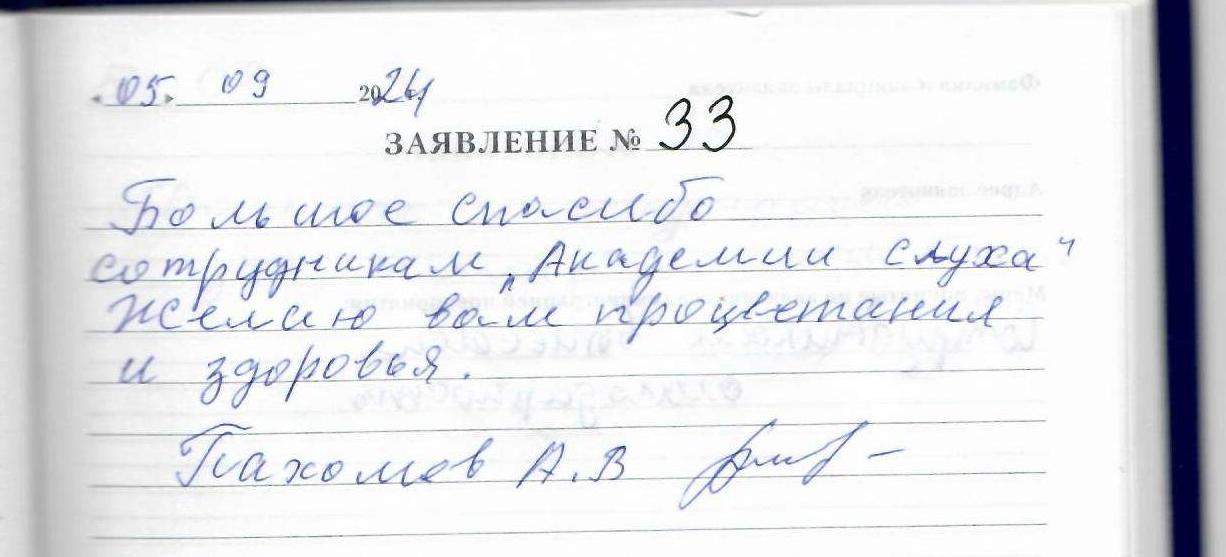 «05» 09 2024
ЗАЯВЛЕНИЕ № 33
Большое спасибо
сотрудникам „Академии слуха“
Желаю вам процветания
и здоровья.
Пахомов А.В